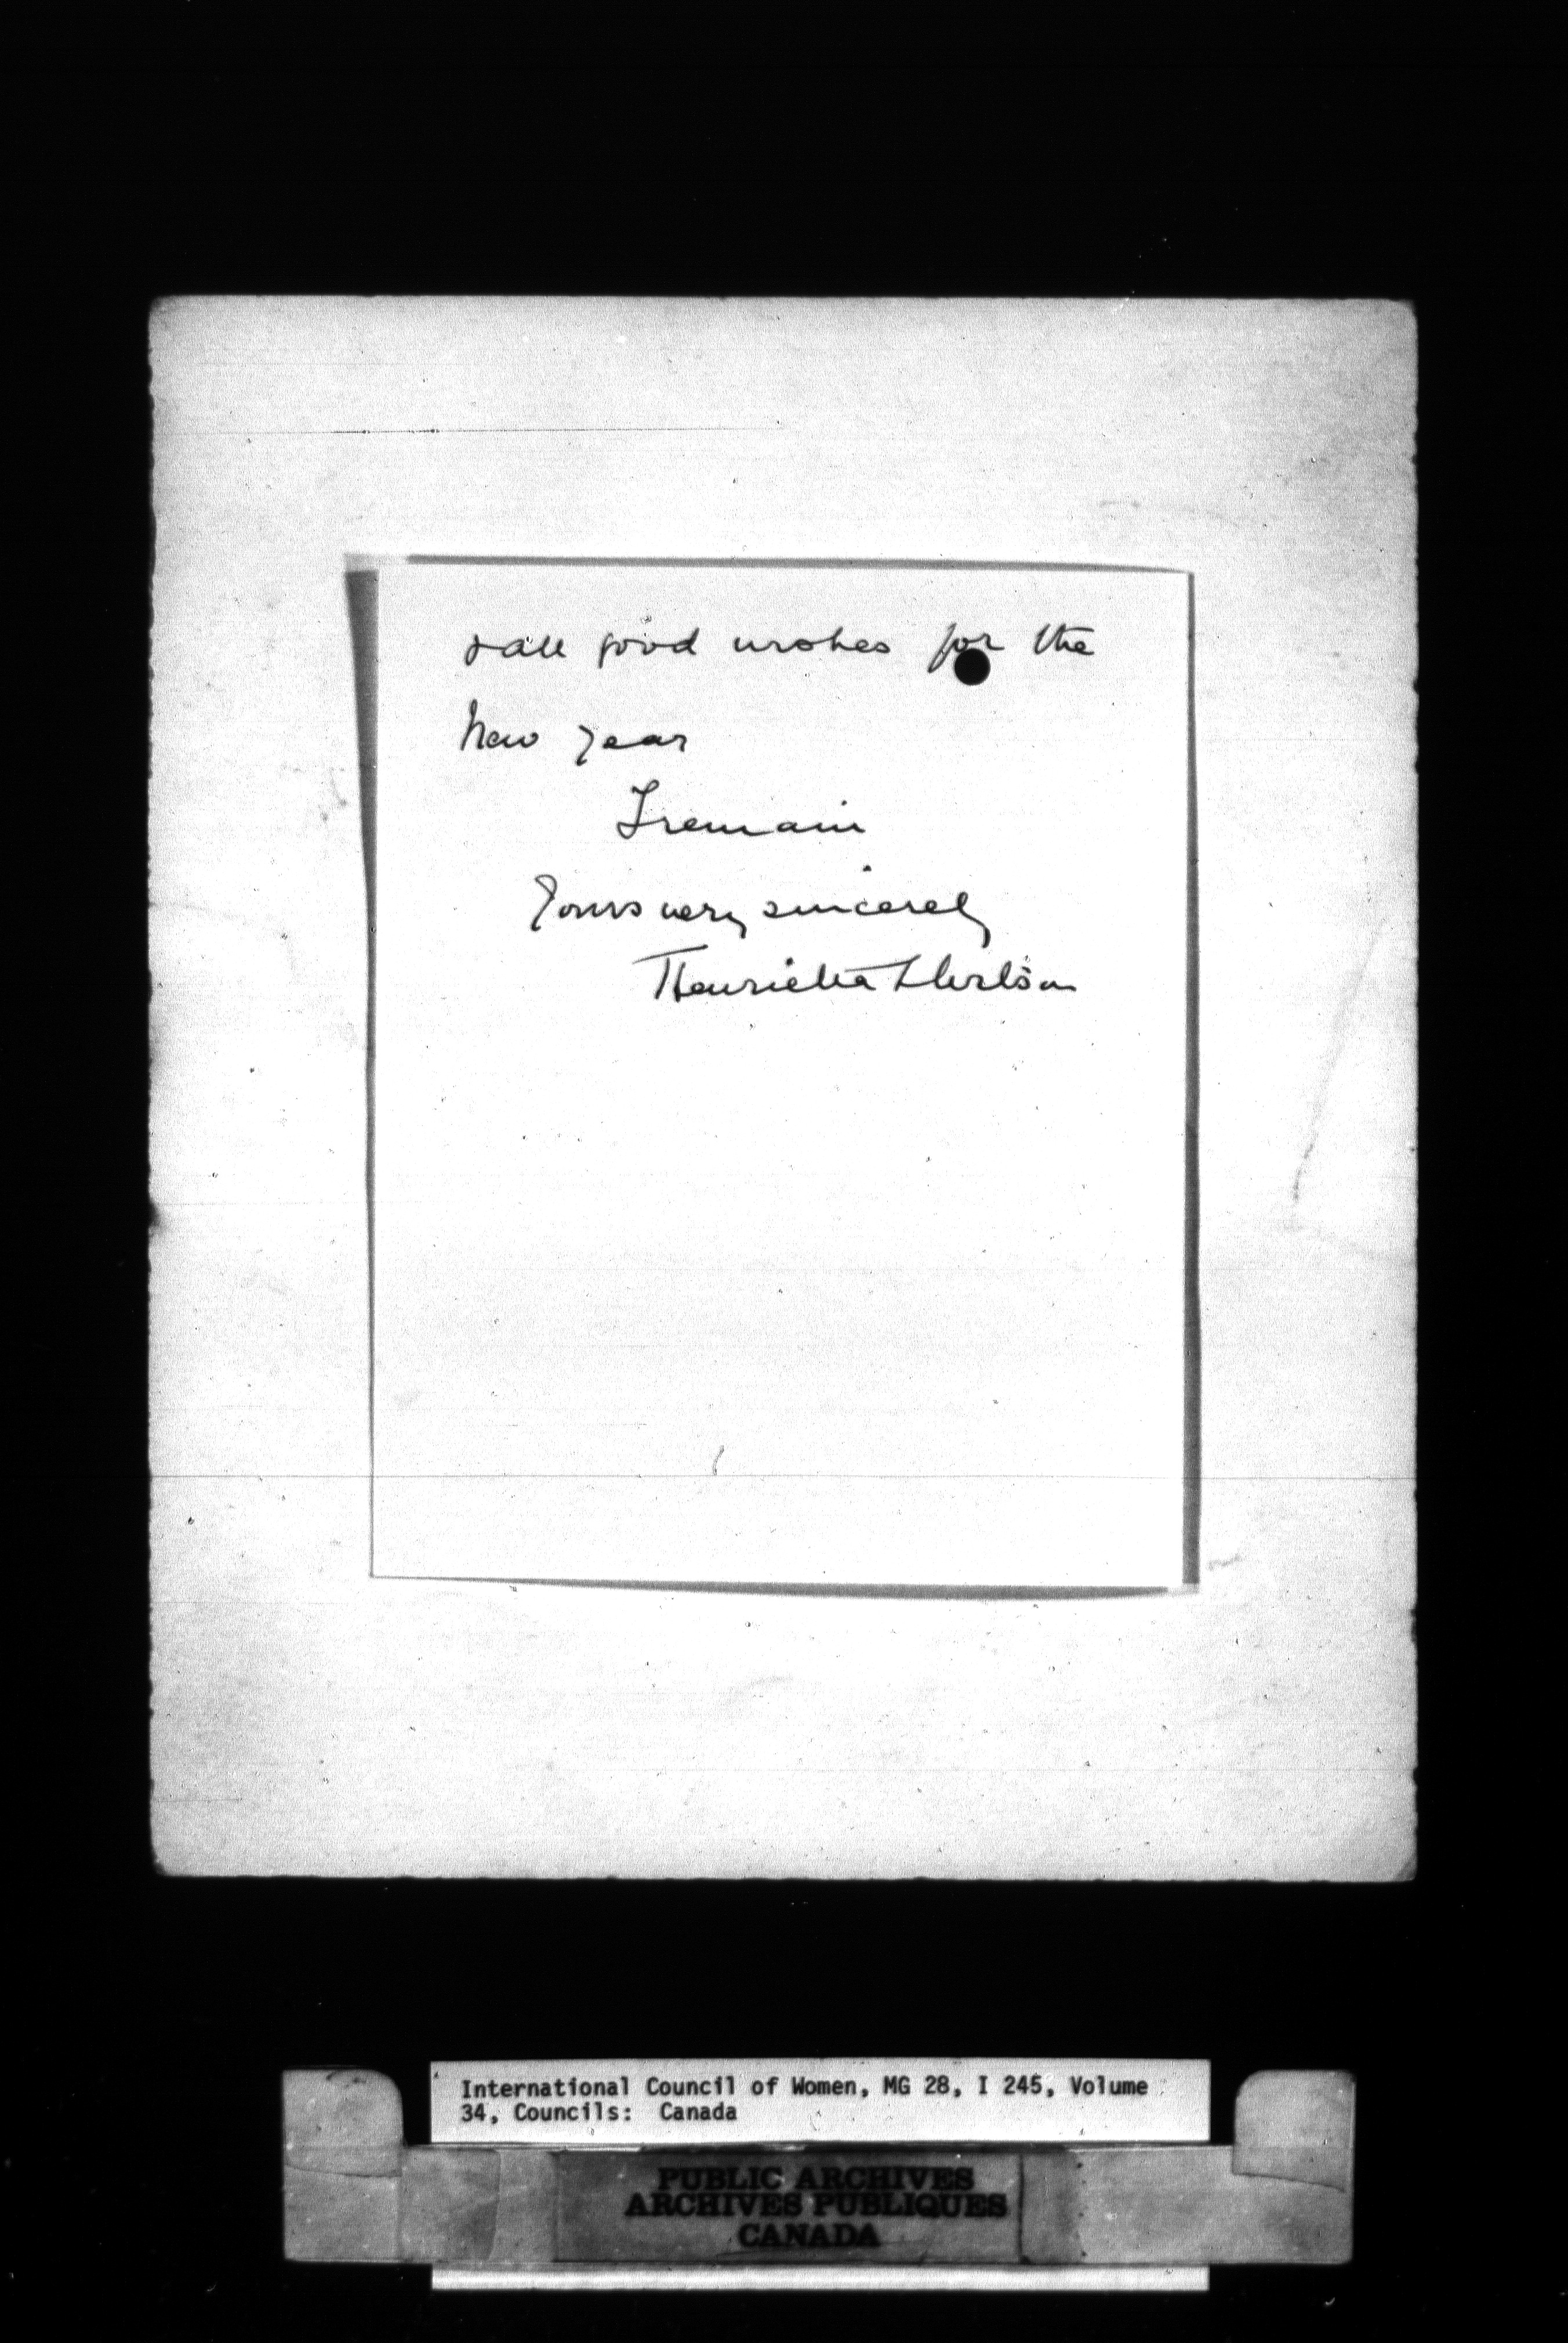 & all good wishes for the
New Year
I remain
Yours very sincerely
Henrietta
International Council of Women, MG 28, I 245, Volume
34, Councils: Canada
PUBLIC ARCHIVES
ARCHIVES PUBLIQUES
CANADA